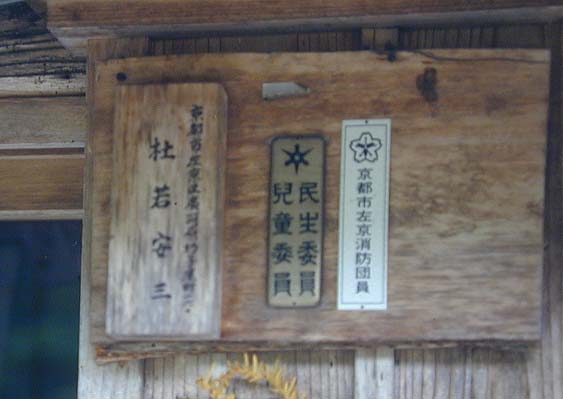 京都市左京消防団員
民生委員
兒童委員
京都市左京区
杜若安三